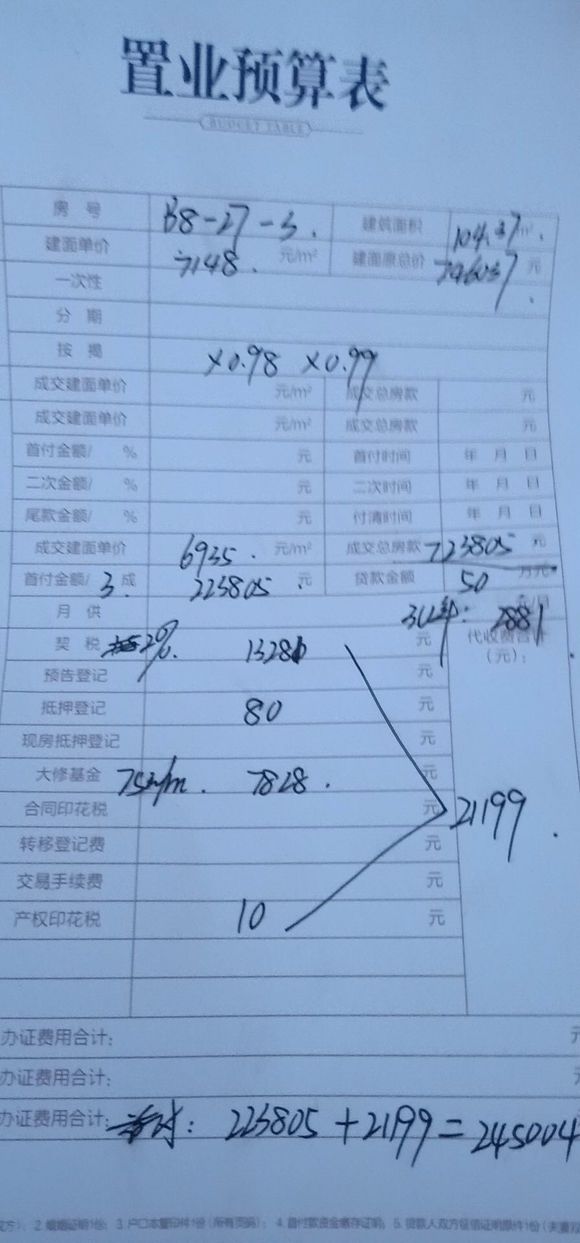 置业预算表
BUDGET TABLE
房号 B8-27-3. 建筑面积 104.37m².
建面单价 7148. 元/m² 建面原总价 746037 元
一次性
分期
按揭 ×0.98 ×0.99
成交建面单价 元/m² 成交总房款 元
成交建面单价 元/m² 成交总房款 元
首付金额/ % 元 首付时间 年 月 日
二次金额/ % 元 二次时间 年 月 日
尾款金额/ % 元 付清时间 年 月 日
成交建面单价 6935. 元/m² 成交总房款 723805 元
首付金额/3.成 223805. 元 贷款金额 50 万元
月供 30年: 2881 元/月
契税 2%. 13281 元 代收费合计(元):
预告登记 元
抵押登记 80 元
现房抵押登记 元
大修基金 75元/m. 7828. 元
合同印花税 元 21199.
转移登记费 元
交易手续费 元
产权印花税 10 元
办证费用合计: 元
办证费用合计:
办证费用合计: 首付: 223805+21199=245004
2.婚姻证明1份; 3.户口本复印件1份(所有页码); 4.首付款资金缴存证明; 5.贷款人双方征信证明原件1份